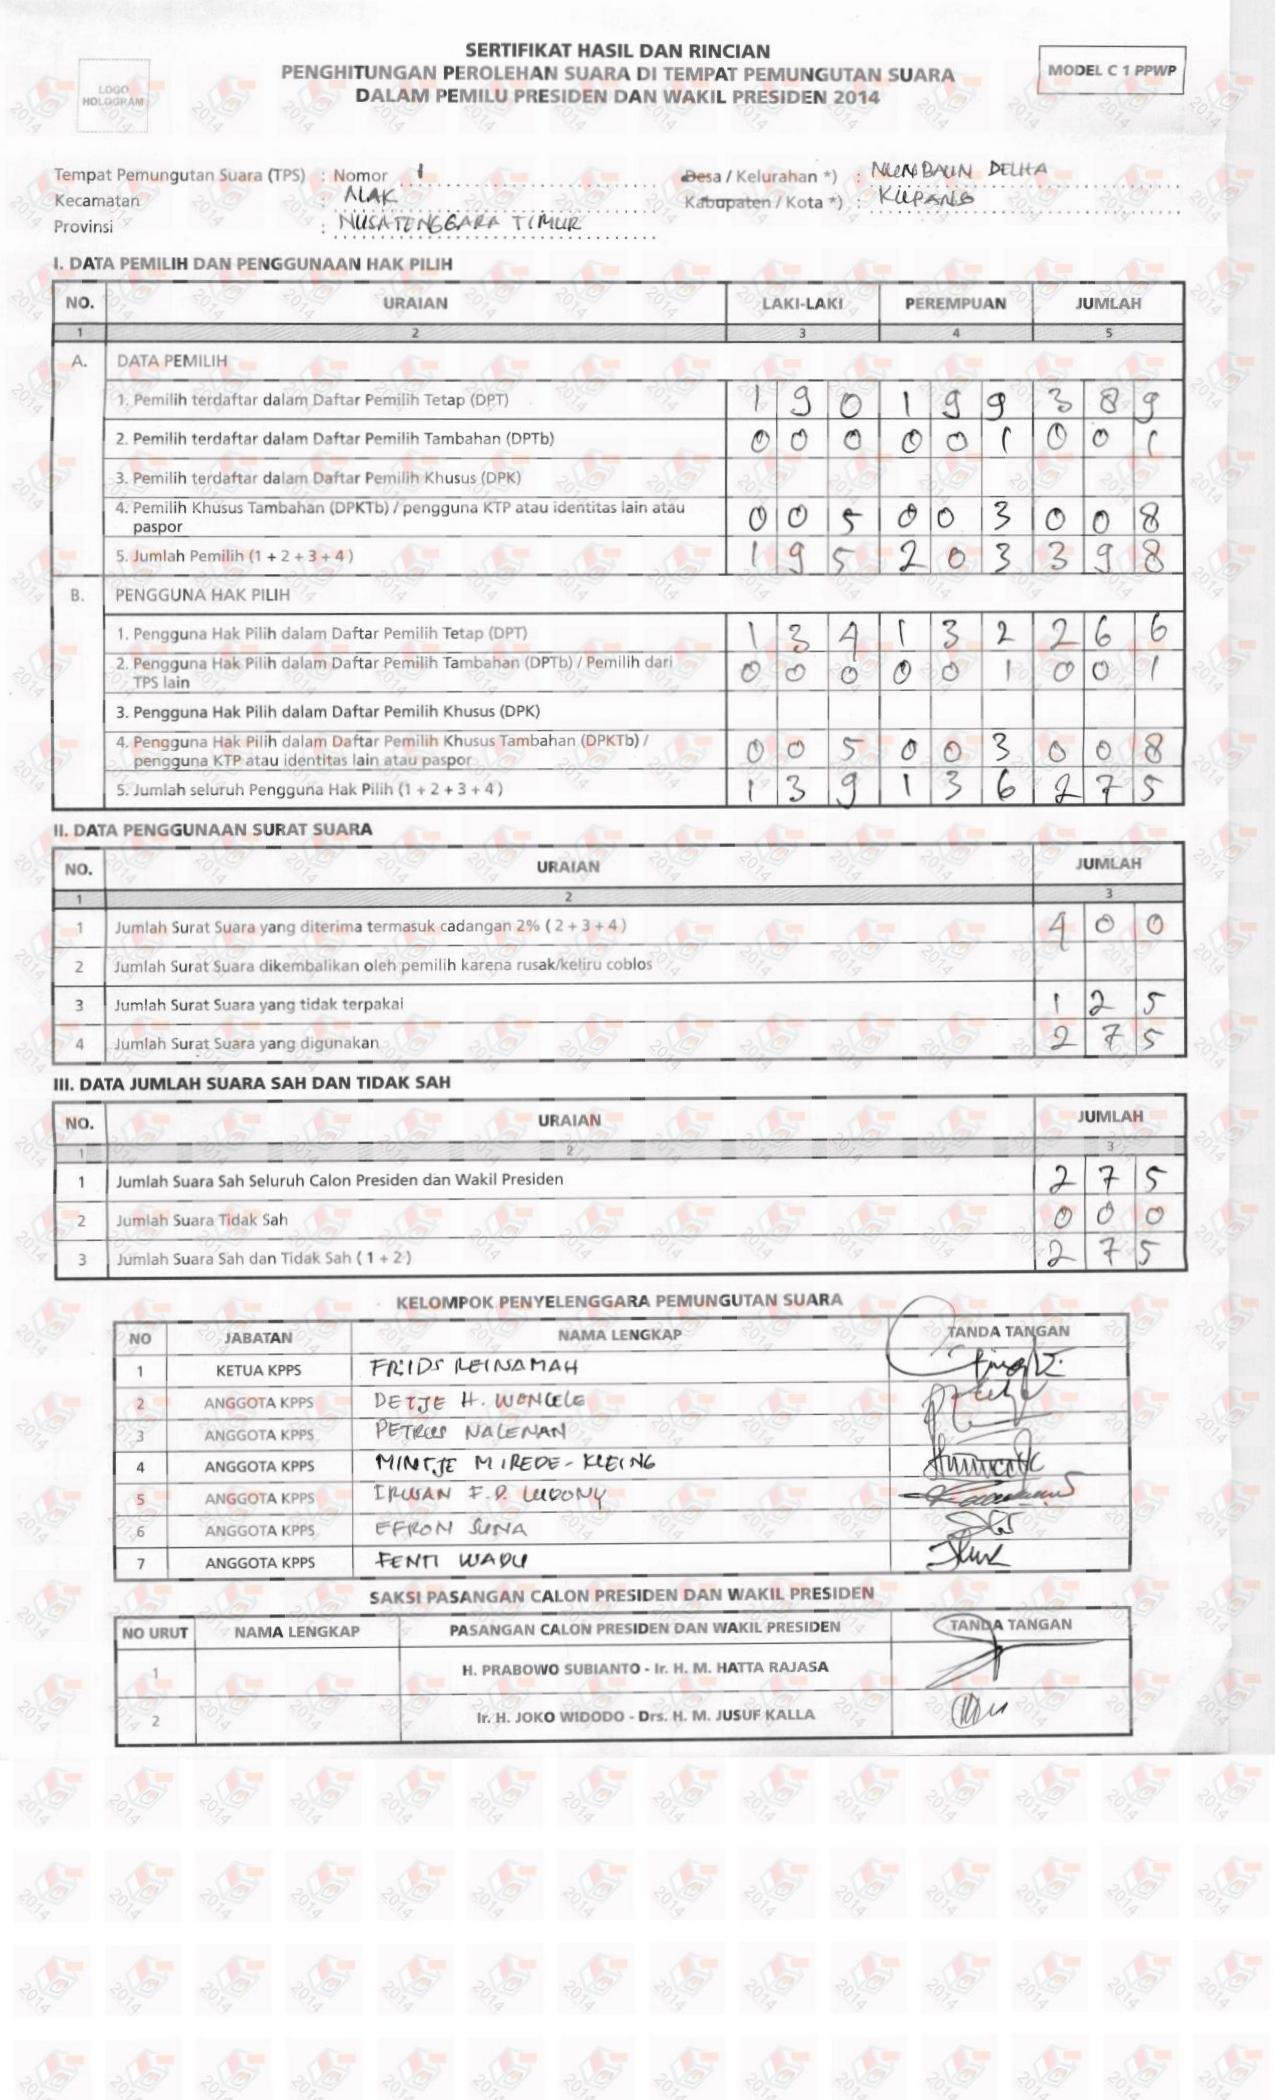 SERTIFIKAT HASIL DAN RINCIAN
PENGHITUNGAN PEROLEHAN SUARA DI TEMPAT PEMUNGUTAN SUARA
DALAM PEMILU PRESIDEN DAN WAKIL PRESIDEN 2014
LOGO
HOLOGRAM
MODEL C 1 PPWP
Tempat Pemungutan Suara (TPS) : Nomor 1
Desa / Kelurahan *) : NUNBAUN DELHA
Kecamatan : ALAK
Kabupaten / Kota *) : KUPANG
Provinsi : NUSATENGGARA TIMUR
I. DATA PEMILIH DAN PENGGUNAAN HAK PILIH
NO. URAIAN LAKI-LAKI PEREMPUAN JUMLAH
1 2 3 4 5
A. DATA PEMILIH
1. Pemilih terdaftar dalam Daftar Pemilih Tetap (DPT) 190 199 389
2. Pemilih terdaftar dalam Daftar Pemilih Tambahan (DPTb) 000 001 001
3. Pemilih terdaftar dalam Daftar Pemilih Khusus (DPK)
4. Pemilih Khusus Tambahan (DPKTb) / pengguna KTP atau identitas lain atau
paspor 005 003 008
5. Jumlah Pemilih (1 + 2 + 3 + 4 ) 195 203 398
B. PENGGUNA HAK PILIH
1. Pengguna Hak Pilih dalam Daftar Pemilih Tetap (DPT) 134 132 266
2. Pengguna Hak Pilih dalam Daftar Pemilih Tambahan (DPTb) / Pemilih dari
TPS lain 000 001 001
3. Pengguna Hak Pilih dalam Daftar Pemilih Khusus (DPK)
4. Pengguna Hak Pilih dalam Daftar Pemilih Khusus Tambahan (DPKTb) /
pengguna KTP atau identitas lain atau paspor 005 003 008
5. Jumlah seluruh Pengguna Hak Pilih (1 + 2 + 3 + 4 ) 139 136 275
II. DATA PENGGUNAAN SURAT SUARA
NO. URAIAN JUMLAH
1 2 3
1 Jumlah Surat Suara yang diterima termasuk cadangan 2% ( 2 + 3 + 4 ) 400
2 Jumlah Surat Suara dikembalikan oleh pemilih karena rusak/keliru coblos
3 Jumlah Surat Suara yang tidak terpakai 125
4 Jumlah Surat Suara yang digunakan 275
III. DATA JUMLAH SUARA SAH DAN TIDAK SAH
NO. URAIAN JUMLAH
1 2 3
1 Jumlah Suara Sah Seluruh Calon Presiden dan Wakil Presiden 275
2 Jumlah Suara Tidak Sah 000
3 Jumlah Suara Sah dan Tidak Sah ( 1 + 2 ) 275
KELOMPOK PENYELENGGARA PEMUNGUTAN SUARA
NO JABATAN NAMA LENGKAP TANDA TANGAN
1 KETUA KPPS FRIDS REINAMAH
2 ANGGOTA KPPS DETJE H.
3 ANGGOTA KPPS PETRUS NALENAN
4 ANGGOTA KPPS MINTJE MIREDE-KLEING
5 ANGGOTA KPPS IRWAN F.D.
6 ANGGOTA KPPS EFRON SUNA
7 ANGGOTA KPPS FENTI WADU
SAKSI PASANGAN CALON PRESIDEN DAN WAKIL PRESIDEN
NO URUT NAMA LENGKAP PASANGAN CALON PRESIDEN DAN WAKIL PRESIDEN TANDA TANGAN
1 H. PRABOWO SUBIANTO - Ir. H. M. HATTA RAJASA
2 Ir. H. JOKO WIDODO - Drs. H. M. JUSUF KALLA